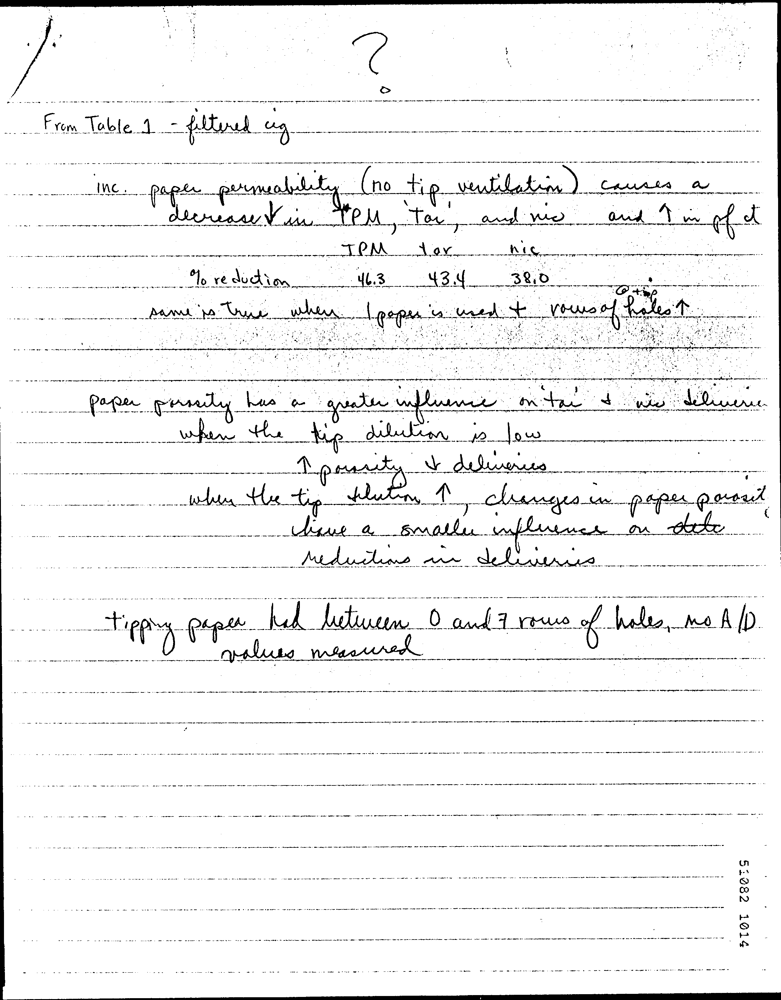 ?
From Table 1 - filtered cig
inc. paper permeability (no tip ventilation) causes a
decrease ↓ in TPM, 'tar', and nic and ↑ in pf ct
TPM tar nic
% reduction 46.3 43.4 38.0
@ tip
same is true when 1 paper is used + rows of holes ↑
paper porosity has a greater influence on 'tar' & nic deliverie
when the tip dilution is low
↑ porosity ↓ deliveries
when the tip dilution ↑, changes in paper porosit
have a smaller influence on
reductions in deliveries
tipping paper had between 0 and 7 rows of holes, no A/D
values measured
51082 1014